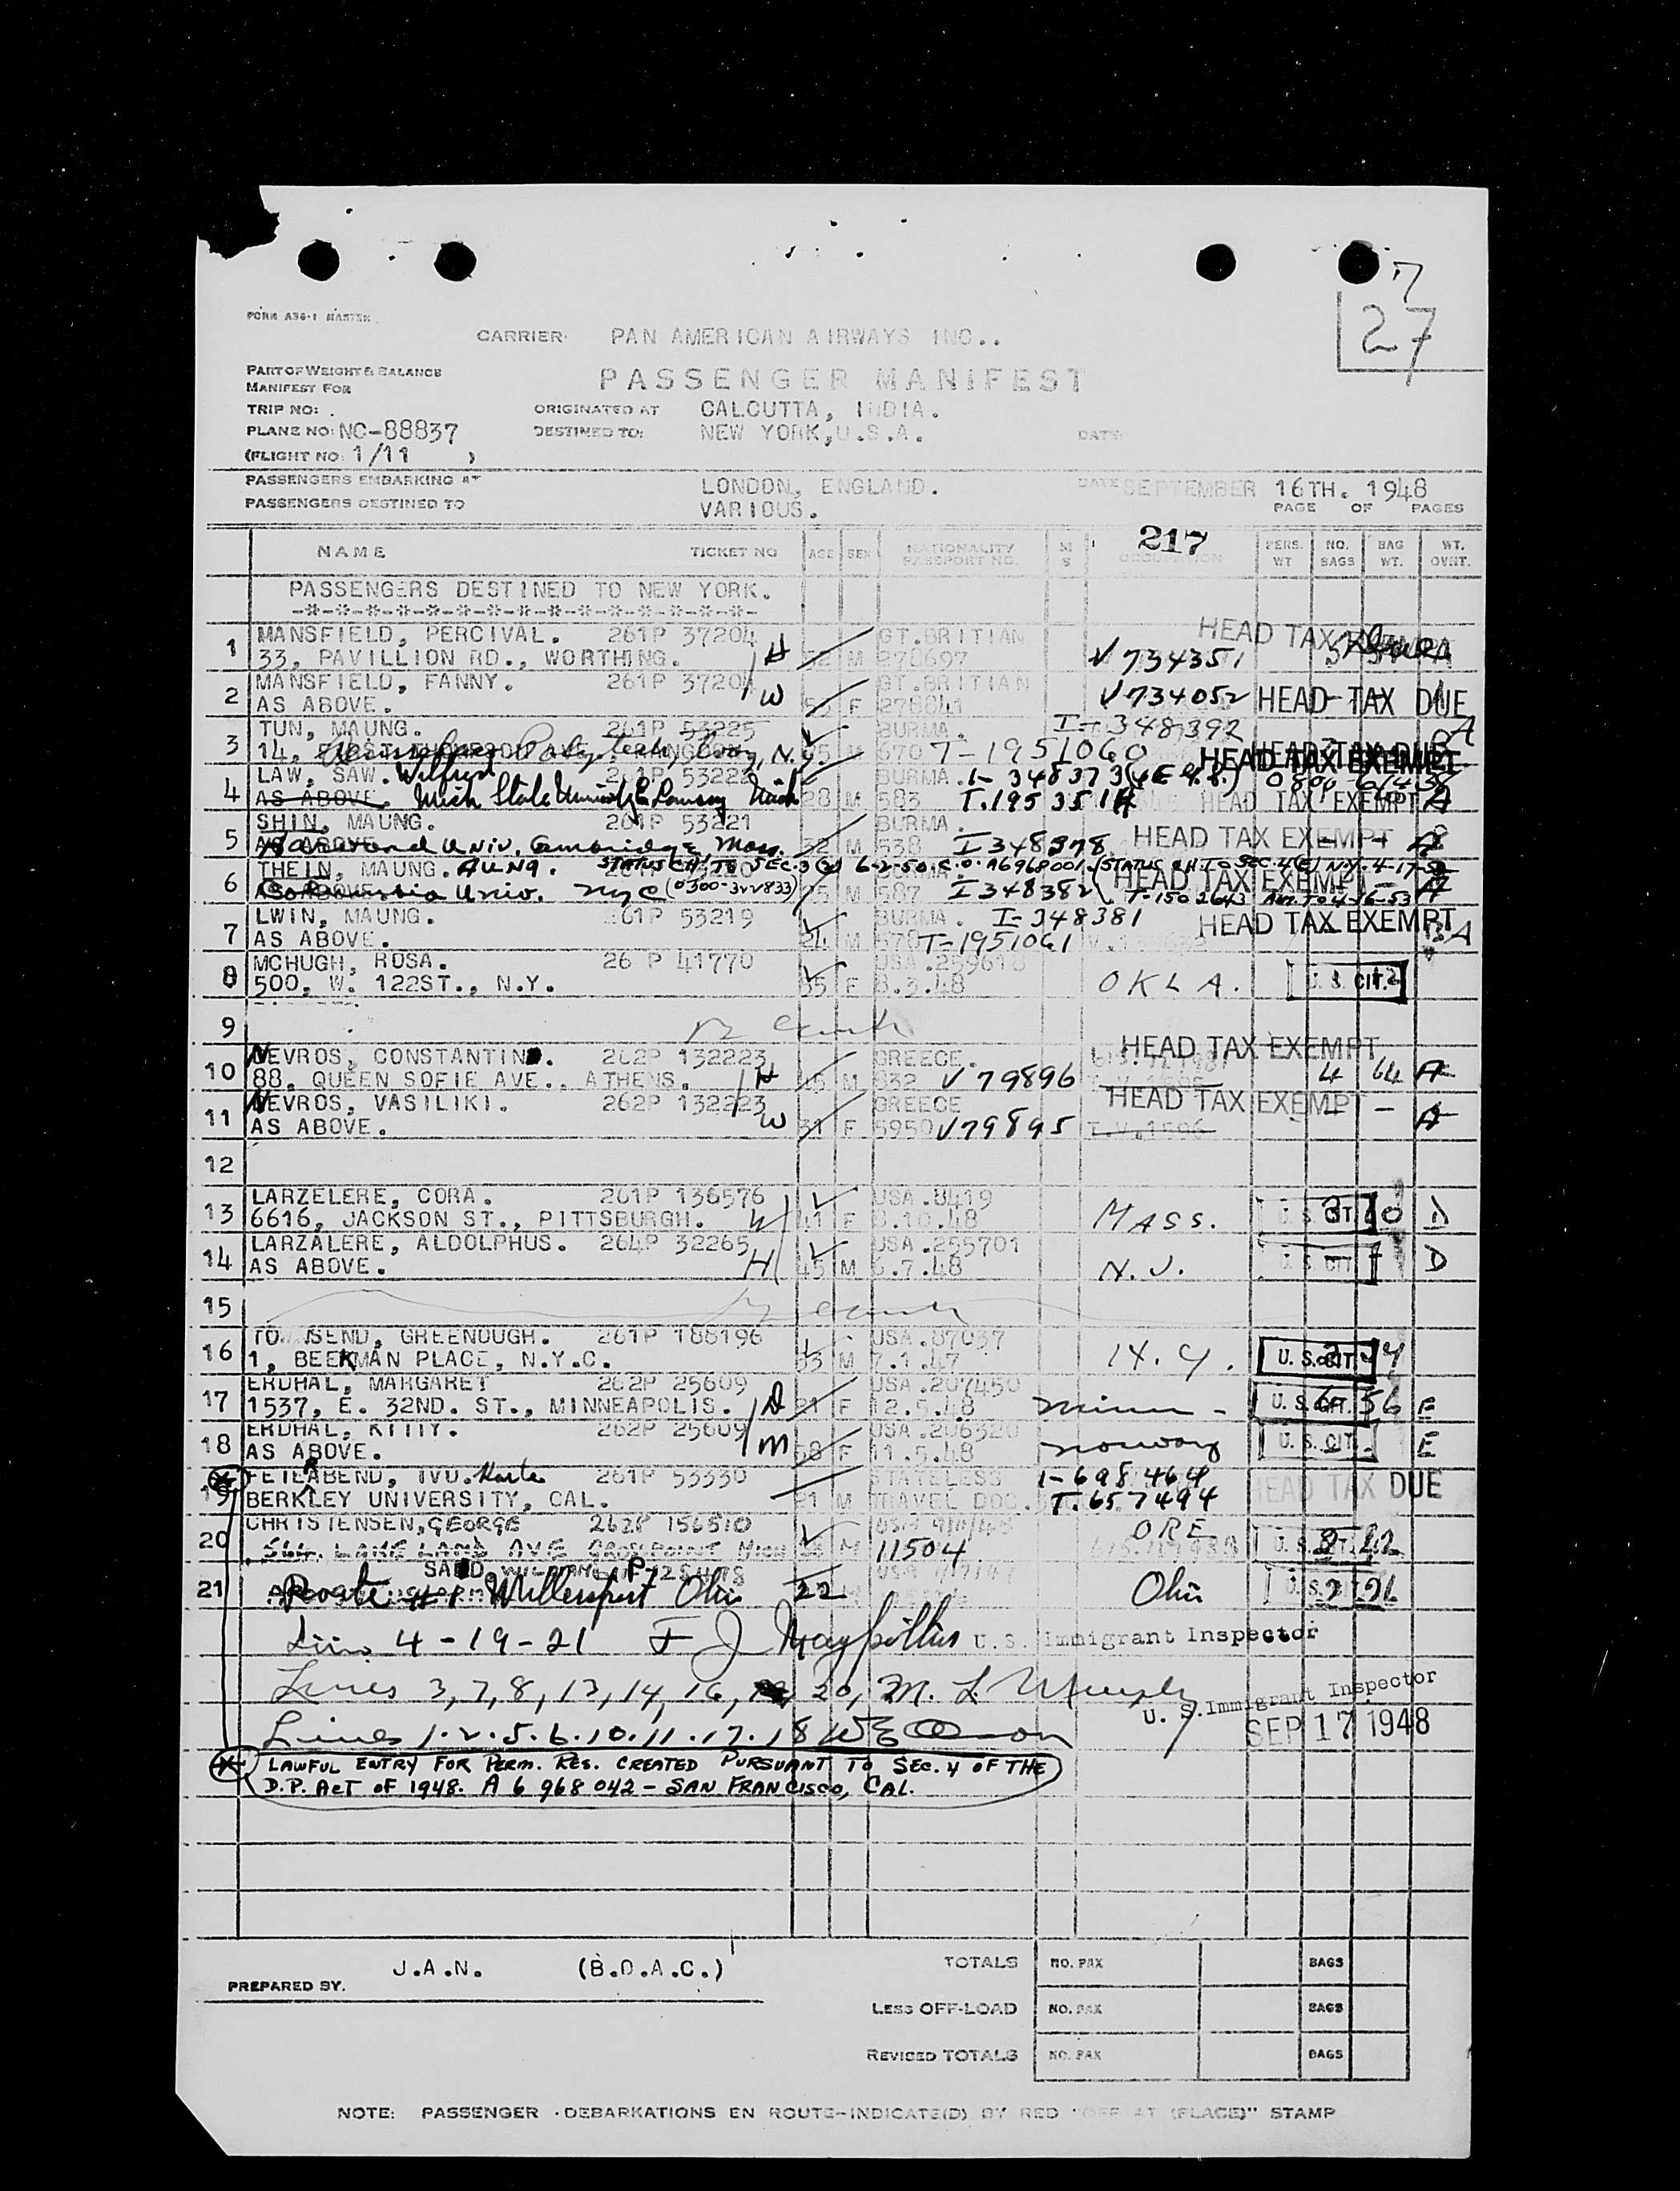 27
FORM A36-1 MASTER
CARRIER PAN AMERICAN AIRWAYS INC..
PART OF WEIGHT & BALANCE
MANIFEST FOR
PASSENGER MANIFEST
TRIP NO:
ORIGINATED AT CALCUTTA, INDIA.
PLANE NO: NC-88837
DESTINED TO: NEW YORK, U.S.A. DATE:
(FLIGHT NO. 1/11 )
PASSENGERS EMBARKING AT LONDON, ENGLAND. DATE SEPTEMBER 16TH. 1948
PASSENGERS DESTINED TO VARIOUS. PAGE OF PAGES
217
NAME TICKET NO AGE SEX NATIONALITY PASSPORT NO. OCCUPATION PERS. WT NO. BAGS BAG WT. WT. OVNT.
PASSENGERS DESTINED TO NEW YORK.
-*-*-*-*-*-*-*-*-*-*-*-*-*-*-*-
1 MANSFIELD, PERCIVAL. 261P 37204 GT.BRITIAN HEAD TAX
33, PAVILLION RD., WORTHING. H M 278697 V734351
2 MANSFIELD, FANNY. 261P 3720 GT.BRITIAN V734052 HEAD TAX DUE
AS ABOVE. W F 278841
3 TUN, MAUNG. 261P 53225 BURMA. I-348392 A
14, Troy, N.Y. M 670 T-1951060
4 LAW, SAW. Wilfred 261P 53223 BURMA. I-348373
AS ABOVE. Mich State 28 M 583 T.195351 HEAD TAX EXEMPT A
5 SHIN, MAUNG. 261P 53221 BURMA.
Univ. Cambridge Mass. 32 M 538 I348378 HEAD TAX EXEMPT A
6 THEIN, MAUNG. AUNG. STATUS CH. TO SEC. 3 6-2-50 C.O. A6968001
Columbia Univ. NYC (0300-322833) M 587 I348382 HEAD TAX EXEMPT T-1502643
7 LWIN, MAUNG. 261P 53219 BURMA. I-348381 HEAD TAX EXEMPT
AS ABOVE. 24 M 570 T-1951061 A
8 MCHUGH, ROSA. 26 P 41770 USA.259618
500, W. 122ST., N.Y. F 8.3.48 OKLA. U. S. CIT.
9
10 NEVROS, CONSTANTIN. 262P 132223 GREECE. HEAD TAX EXEMPT
88, QUEEN SOFIE AVE., ATHENS. H 45 M 832 V79896 4 64 A
11 NEVROS, VASILIKI. 262P 132223 GREECE HEAD TAX EXEMPT -
AS ABOVE. W 31 F 5950 V79895 T.V.1596 A
12
13 LARZELERE, CORA. 261P 136576 USA.8419
6616, JACKSON ST., PITTSBURGH. W 41 F 8.10.48 MASS. D
14 LARZALERE, ALDOLPHUS. 264P 32265 USA.255701
AS ABOVE. H 45 M 6.7.48 N.J. U.S. CIT. D
15
16 TOWNSEND, GREENOUGH. 261P 188196 USA.87037
1, BEEKMAN PLACE, N.Y.C. M 7.1.47 N.Y. U. S. CIT.
17 ERDHAL, MARGARET 262P 25609 USA.207450
1537, E. 32ND. ST., MINNEAPOLIS. D 21 F 12.5.48 Minn - U. S. CIT. 56 E
18 ERDHAL, KITTY. 262P 25609 USA.206320
AS ABOVE. M 58 F 11.5.48 Norway U. S. CIT. E
19 FEIERABEND, IVO. 261P 53330 STATELESS I-698464 HEAD TAX DUE
BERKLEY UNIVERSITY, CAL. 21 M TRAVEL DOC. T.657494
20 CHRISTENSEN, GEORGE 262P 156510 ORE
564, LAKE LAND AVE GROSPOINT MICH M 11504
21 Route #1 Ohio 22 Ohio
4-19-21 U.S. Immigrant Inspector
Lines 3, 7, 8, 13, 14, 16, 20, M. L. Murphy
U. S. Immigrant Inspector
SEP 17 1948
Lines 1.2.5.6.10.11.17.18
LAWFUL ENTRY FOR PERM. RES. CREATED PURSUANT TO SEC. 4 OF THE
D.P. ACT OF 1948. A 6 968 042 - SAN FRANCISCO, CAL.
PREPARED BY. J.A.N. (B.O.A.C.)
TOTALS NO. PAX BAGS
LESS OFF-LOAD NO. PAX BAGS
REVISED TOTALS NO. PAX BAGS
NOTE: PASSENGER DEBARKATIONS EN ROUTE-INDICATE(D) BY RED "OFF AT (PLACE)" STAMP